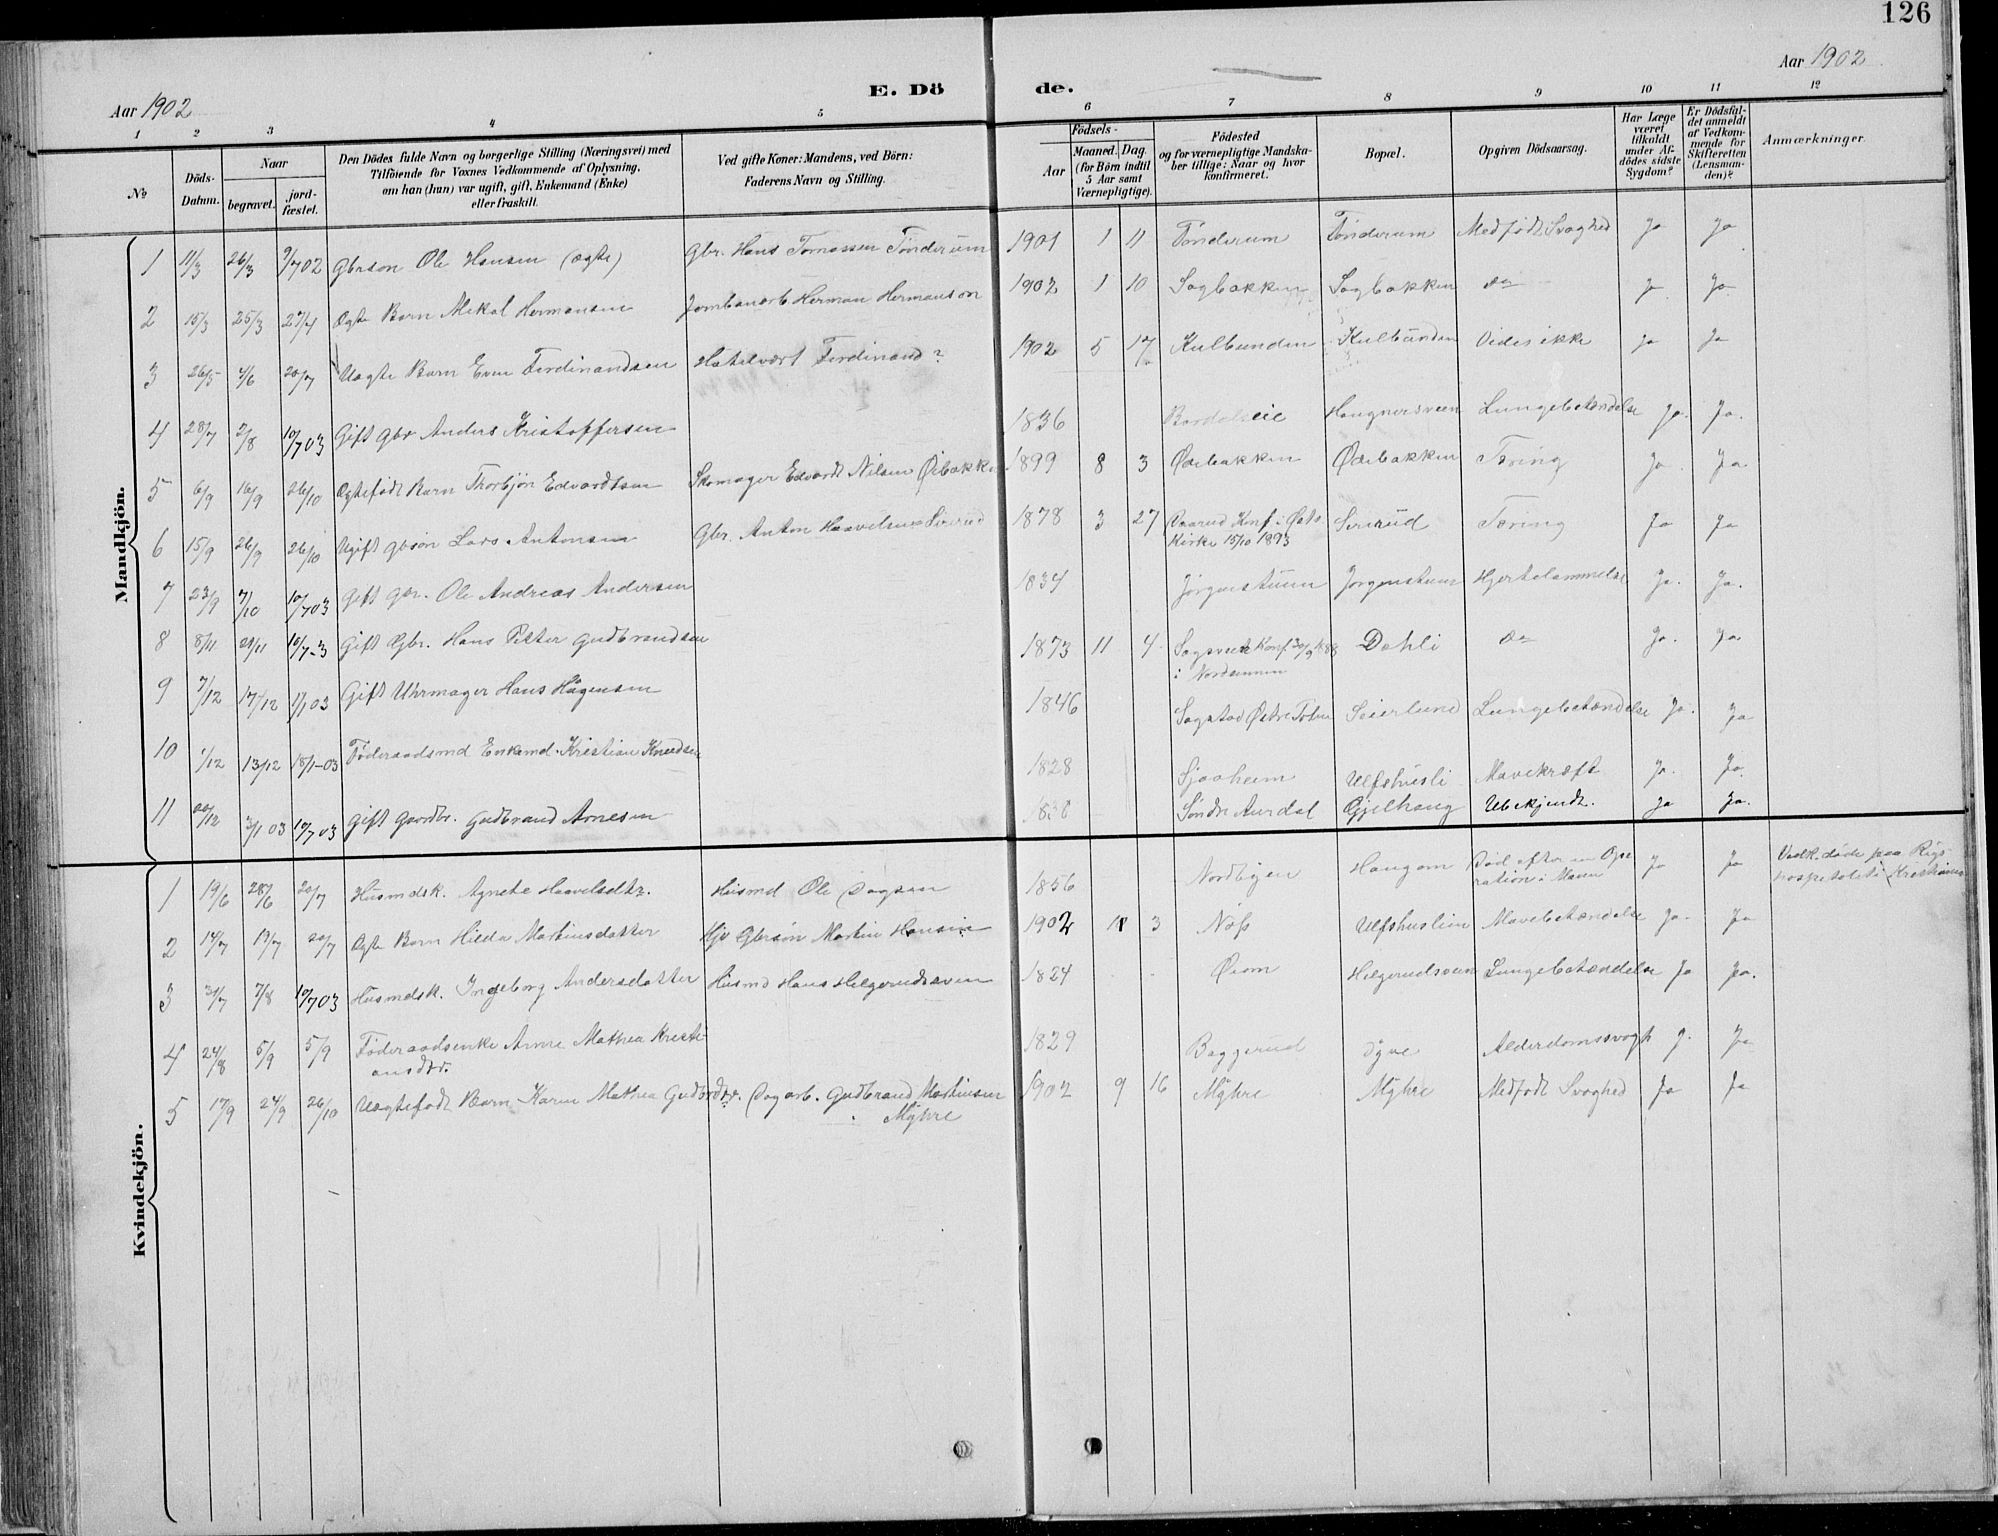 126
Aar 1902
E. Dö de.
Aar 1902
1 2 3 4 5 6 7 8 9 10 11 12
№
Döds-Datum.
Naar
begravet.
jord-fæstet.
Den Dödes fulde Navn og borgerlige Stilling (Næringsvei) med
Tilföiende for Voxnes Vedkommende af Oplysning,
om han (hun) var ugift, gift, Enkemand (Enke)
eller fraskilt.
Ved gifte Koner: Mandens, ved Börn:
Faderens Navn og Stilling.
Födsels-
Aar
Maaned. Dag.
(for Börn indtil
5 Aar samt
Værnepligtige).
Födested
og for værnepligtige Mandska-
ber tillige: Naar og hvor
konfirmeret.
Bopæl.
Opgiven Dödsaarsag.
Har Læge
været
tilkaldt
under Af-
dödes sidste
Sygdom?
Er Dödsfal-
det anmeldt
af Vedkom-
mende for
Skifteretten
(Lensman-
den)?
Anmærkninger.
Mandkjön.
1 11/3 26/3 9/702 Gbrsøn Ole Hansen (ægte) Gbr. Hans Tomassen Tønderum 1901 1 11 Tønderum Tønderum Medfødt Svaghed Ja Ja
2 15/3 25/3 27/4 Ægte Barn Mekal Hermansen Jernbanarb Herman Hermanson 1902 1 10 Sagbakken Sagbakken do Ja Ja
3 26/5 4/6 20/7 Uægte Barn Even Ferdinandsen Hotelvært Ferdinand? 1902 5 17 Kulbunden Kulbunden Vides ikke Ja Ja
4 28/7 2/8 10/703 Gift Gbr Anders Kristoffersen 1836 Haugnersveen Lungebetændelse Ja. Ja.
5 6/9 16/9 26/10 Ægtefødt Barn Thorbjøn Edvardtsen Skomager Edvardt Nilsen 1899 8 3 Ødebakken Ødebakken Tæring Ja Ja
6 15/9 26/9 26/10 Ugift Gbsøn Lars Antonsen Gbr. Anton Haavelsen 1878 3 27 Konf. i Østs
Kirke 15/10 1893 Tæring Ja Ja
7 23/9 7/10 10/703 Gift Gbr. Ole Andreas Andersen 1834 Jørgenstuen Jørgenstuen Hjertelammelse Ja. Ja.
8 8/11 21/11 10/7-3 Gift Gbr. Hans Petter Gudbrandsen 1873 11 4 Konf 30/9 1888
i Nordsinnen Dahli do Ja. Ja.
9 7/12 17/12 1/1 03 Gift Uhrmager Hans Hågensen 1846 Sagstad Østre Toten Seierlund Lungebetændelse Ja. Ja
10 1/12 13/12 18/1-03 Føderaadsmd Enkemd. Kristian Knudsen 1828 Sjaaheim Ulfshusli Mavekræft Ja. Ja.
11 20/12 3/1 03 10/703 Gift Gaardbr. Gudbrand Arnesen Søndre Aurdal Gjelhaug Ubekjendt. Ja Ja.
Kvindekjön.
1 19/6 28/6 20/7 Husmdsk. Agnete Haavelsdtr. Husmd Ole Dagsen 1856 Haugom Død efter en Ope-
ration i Maven Ja Ja Vedk. døde paa Rigs-
hospitalet i Kristiania
2 14/7 19/7 20/7 Ægte Barn Hilda Martinsdatter Gbrsøn Martin Hansen 1902 3 Næss Ulfshuslien Mavebetændelse Ja. Ja
3 31/7 7/8 10/703 Husmdsk. Ingeborg Andersdatter Husmd Hans Helgerudsveen 1824 Øiom Helgerudsveen Lungebetændelse Ja Ja.
4 24/8 5/9 5/9 Føderaadsenke Anne Mathea Kristi-
ansdtr. 1829 Baggerud Alderdomssvagh J. Ja
5 17/9 24/9 26/10 Uægtefødt Barn Karen Mathea Gudbrdtr. Dagarb. Gudbrand Martinsen
Mÿhre 1902 9 16 Mÿhre Mÿhre Medfødt Svaghed Ja Ja